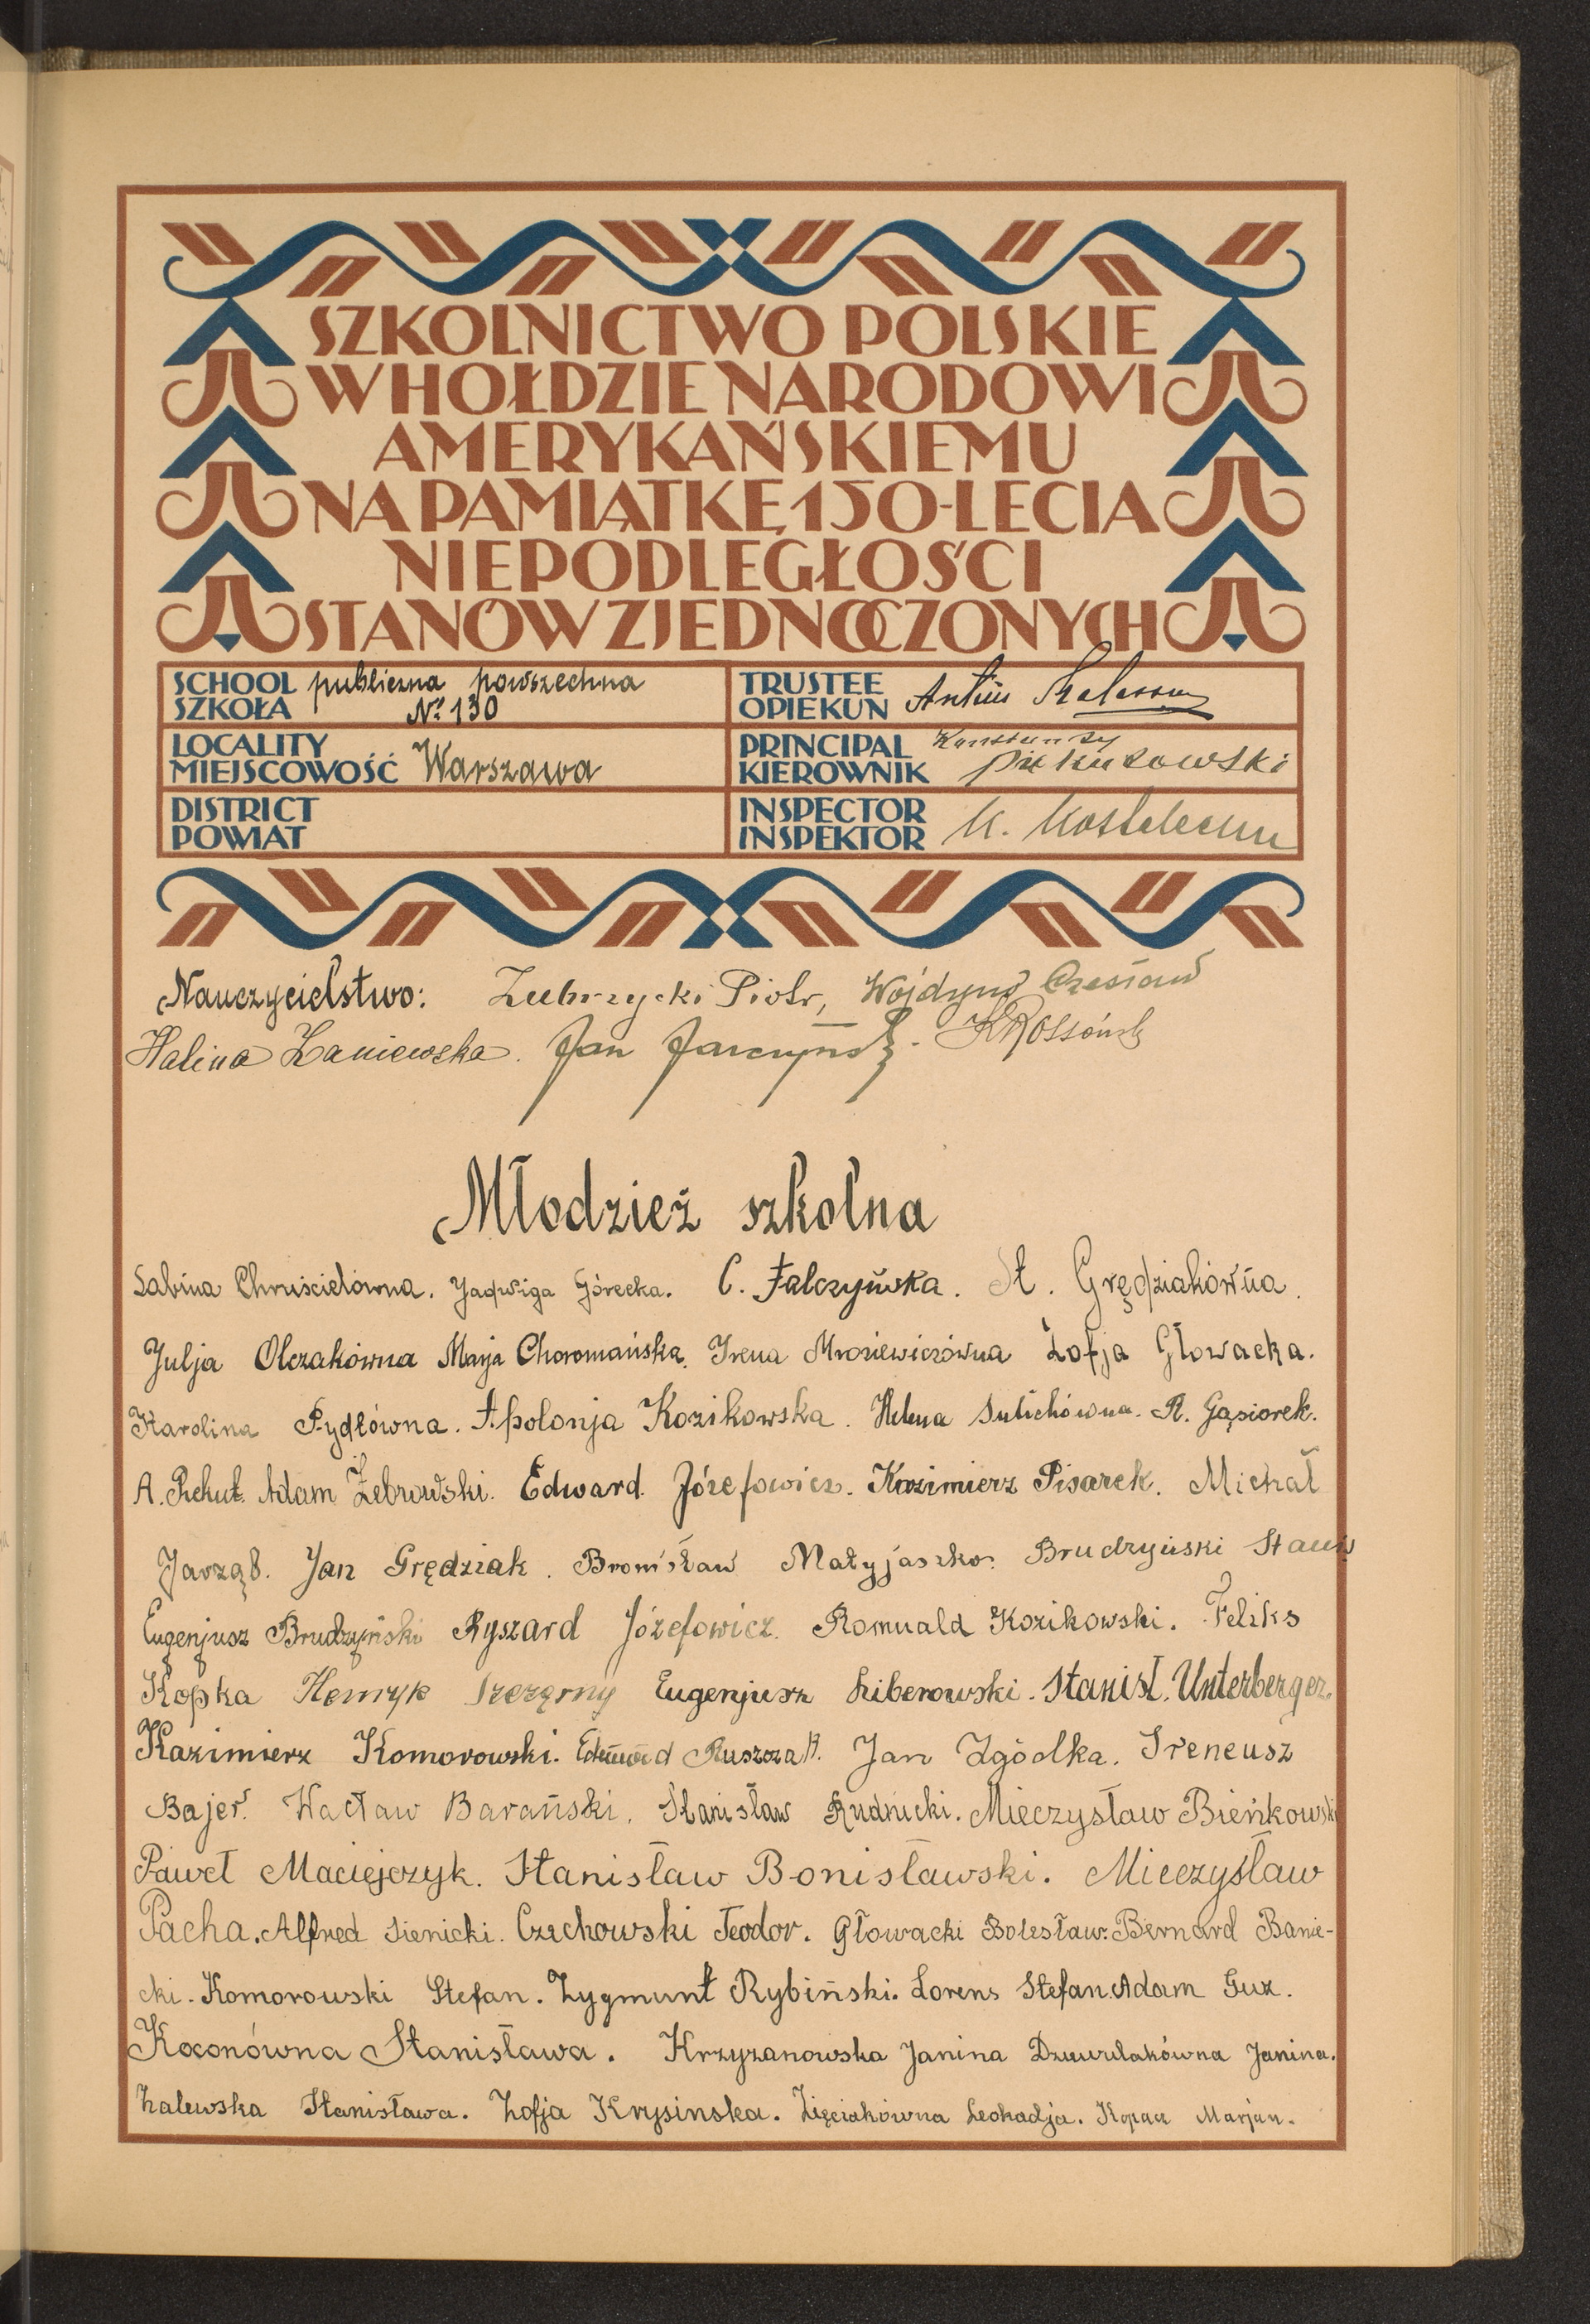 SZKOLNICTWO POLSKIE
W HOŁDZIE NARODOWI
AMERYKAŃSKIEMU
NA PAMIĄTKĘ 150-LECIA
NIEPODLEGŁOŚCI
STANÓW ZJEDNOCZONYCH
SCHOOL publiczna powszechna
SZKOŁA № 130
LOCALITY
MIEJSCOWOŚĆ Warszawa
DISTRICT
POWIAT
TRUSTEE
OPIEKUN
PRINCIPAL Konstanty
KIEROWNIK
INSPECTOR
INSPEKTOR
Nauczycielstwo: Zubrzycki Piotr, Wojdyno Czesław
Halina Zaniewska. Jan
Młodzież szkolna
Sabina Chruścielówna. Jadwiga Górecka. C. Falczyńska. St. Grędziakówna.
Julja Olczakówna Marja Choromańska. Irena Mroziewiczówna Zofja Głowacka.
Karolina Pydłówna. Apolonja Kozikowska. Helena Sulichówna. R. Gąsiorek.
A. Rekut. Adam Żebrowski. Edward Józefowicz. Kazimierz Pisarek. Michał
Jarząb. Jan Grędziak. Bronisław Matyjaszko. Brudzyński
Eugenjusz Brudzyński Ryszard Józefowicz. Romuald Kozikowski. Feliks
Kopka Henryk Eugenjusz Liberowski. Stanisł. Unterberger.
Kazimierz Komorowski. Edmund Ruszczak. Jan Zgódka. Ireneusz
Bajer. Wacław Barański. Stanisław Rudnicki. Mieczysław Bieńkowski
Paweł Maciejczyk. Stanisław Bonisławski. Mieczysław
Pacha. Alfred Sienicki. Czechowski Teodor. Głowacki Bolesław. Bernard Banie-
cki. Komorowski Stefan. Zygmunt Rybiński. Lorens Stefan. Adam Guz.
Stanisława. Krzyzanowska Janina Janina.
Zalewska Stanisława. Zofja Krysinska. Zięciakówna Leokadja. Marjan.